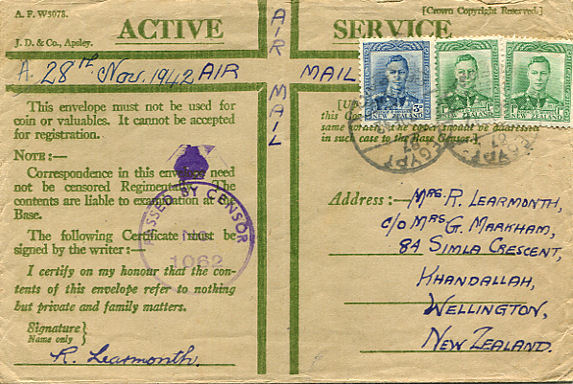 A. F. W3078.
[Crown Copyright Reserved.]
J. D. & Co., Apsley.
ACTIVE SERVICE
A. 28TH Nov. 1942 AIR MAIL
AIR MAIL
This envelope must not be used for
coin or valuables. It cannot be accepted
for registration.
NOTE:—
Correspondence in this envelope need
not be censored Regimentally. The
contents are liable to examination at the
Base.
The following Certificate must be
signed by the writer:—
I certify on my honour that the con-
tents of this envelope refer to nothing
but private and family matters.
Signature
Name only
R. Learmonth.
PASSED BY CENSOR
NO.
1062
NEW ZEALAND
NEW ZEALAND
NEW ZEALAND
EGYPT
EGYPT
this Co
same
in such case to the Base Censor.]
Address:— MRS. R. LEARMONTH,
C/O MRS G. MARKHAM,
8A SIMLA CRESCENT,
KHANDALLAH,
WELLINGTON,
NEW ZEALAND.